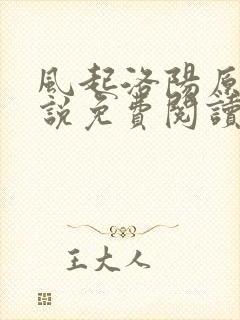 風起洛陽原
說免費閱讀
王大人